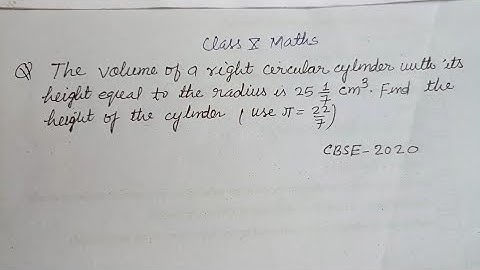 Class X Maths
Q The volume of a right circular cylinder with its
height equal to the radius is 25 1/7 cm³. Find the
height of the cylinder ( use π = 22/7)
CBSE-2020